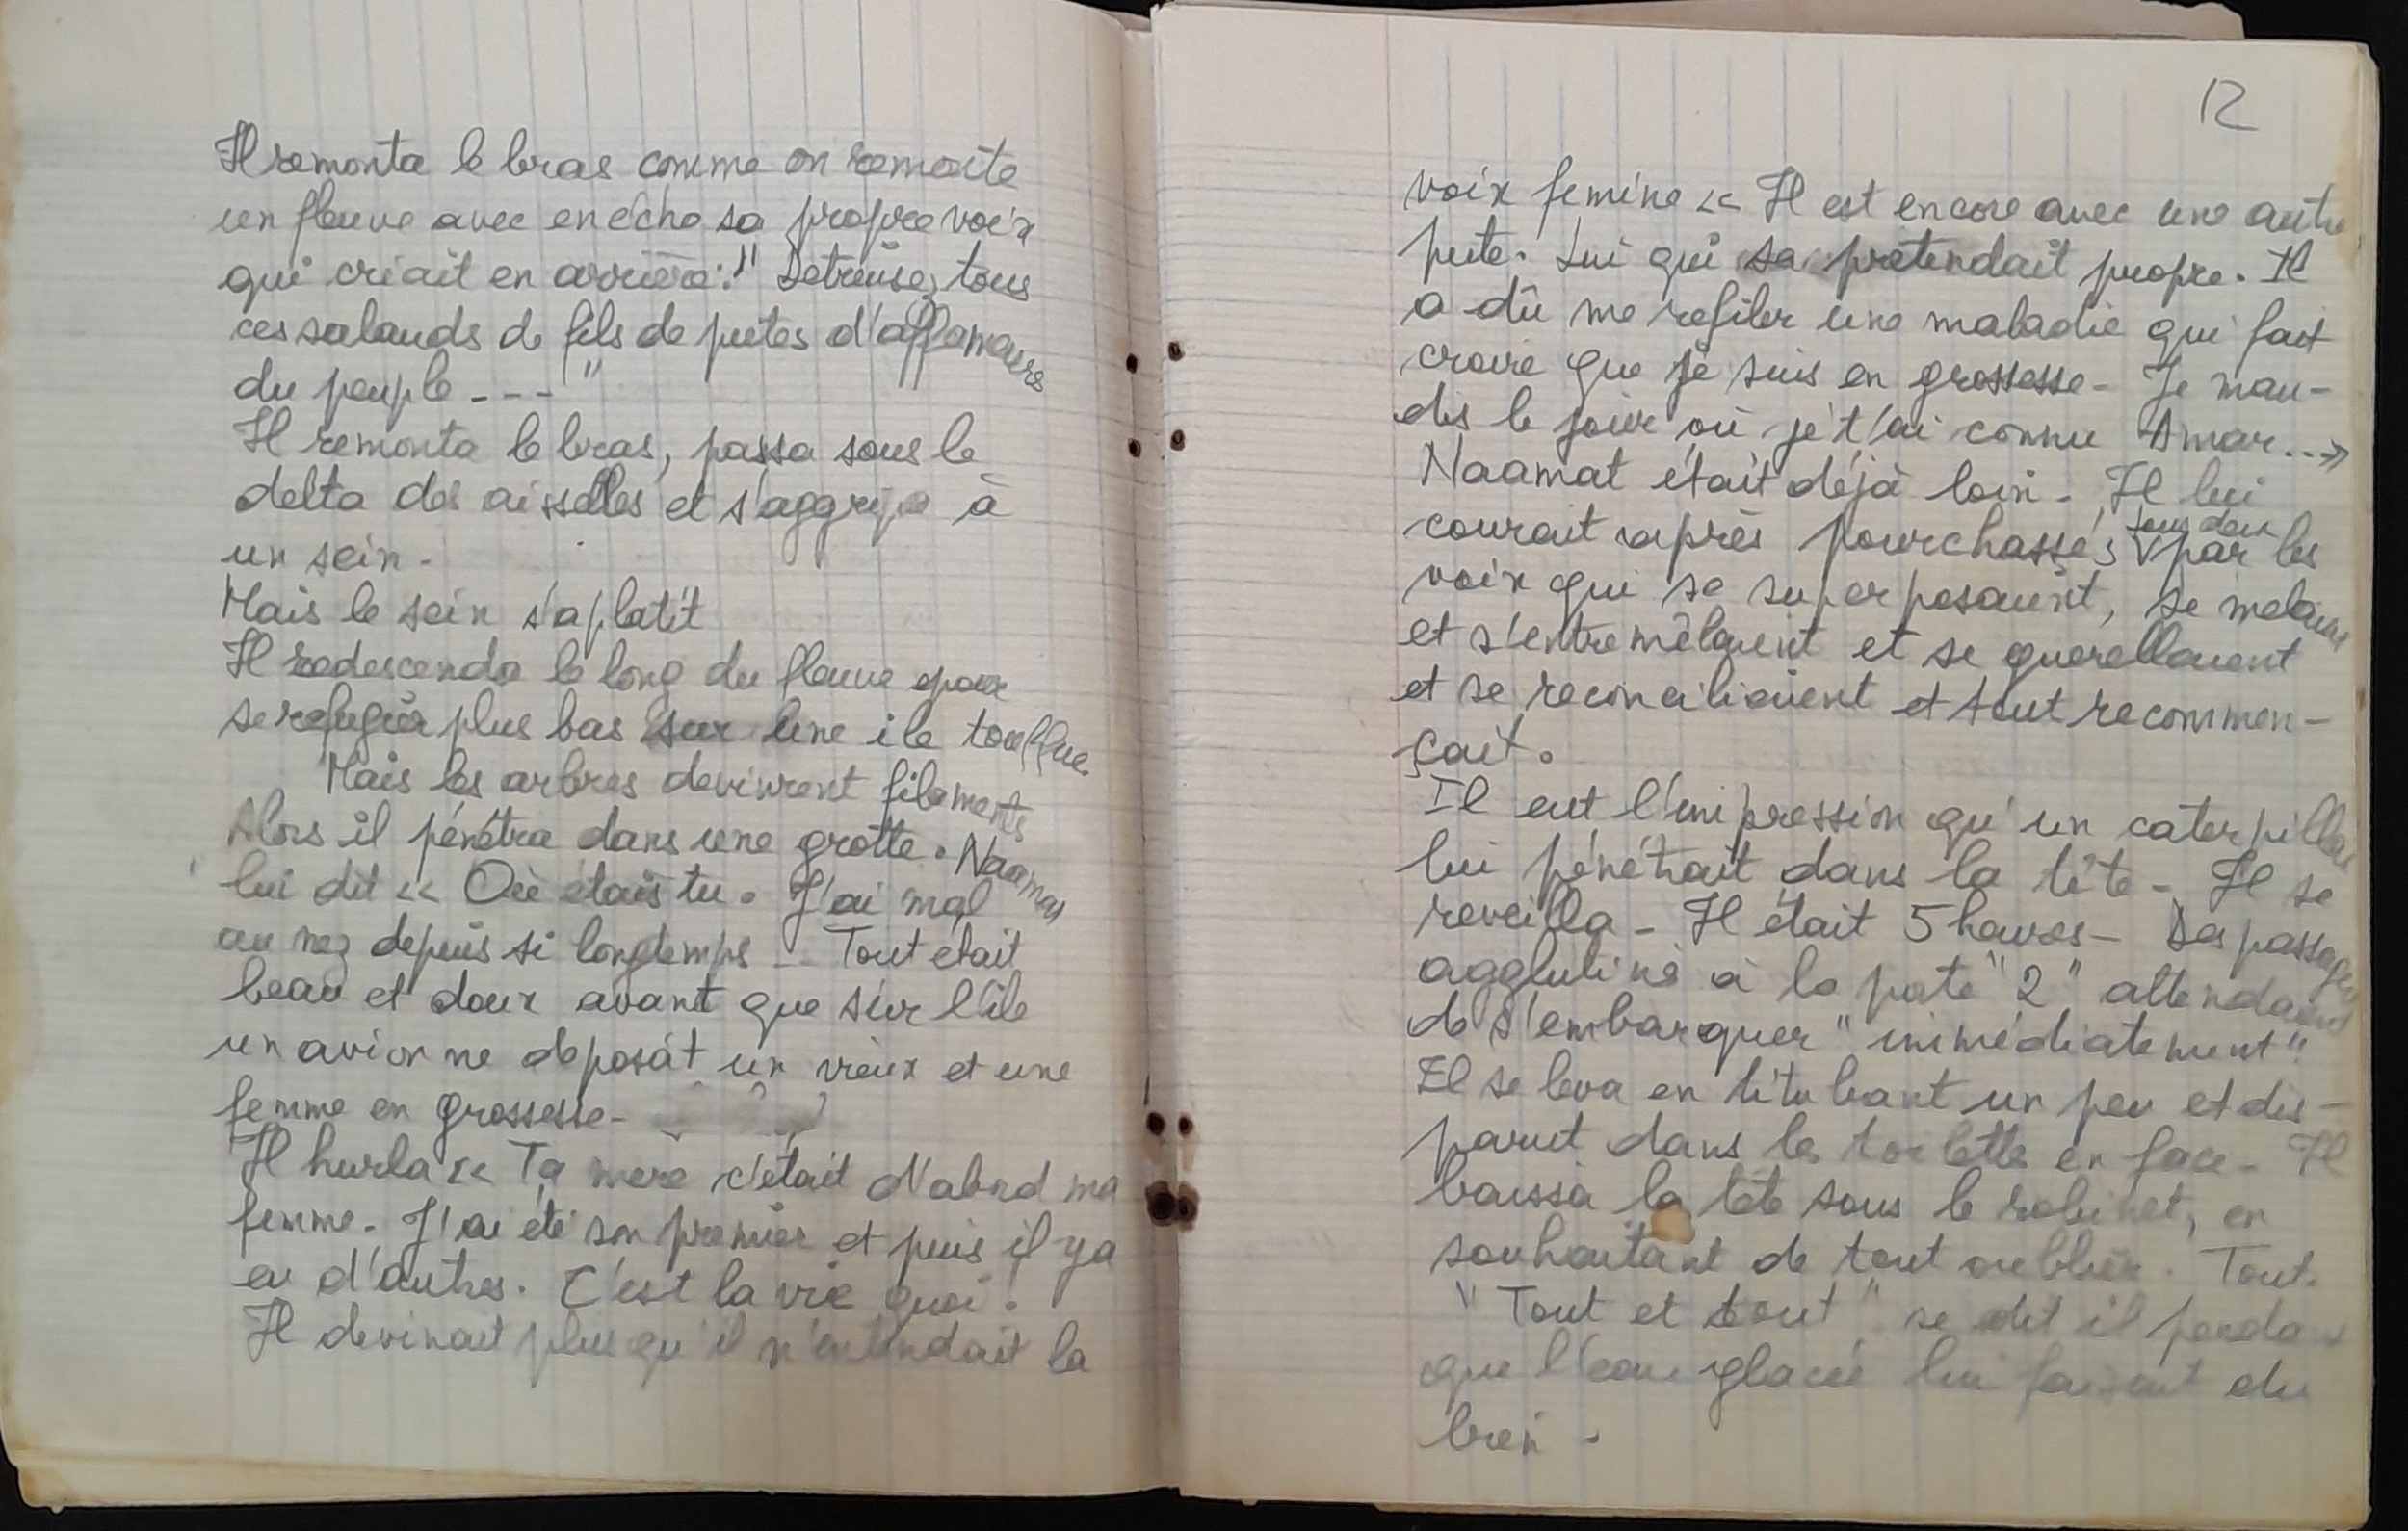 Il remonta le bras comme on remonte
un fleuve avec en écho sa propre voix
qui criait en arrière : " Detruisez tous
ces salauds de fils de putes d'affameurs
du peuple --- "
Il remonta le bras, passa sous le
delta des aisselles et s'aggripa à
un sein.
Mais le sein s'aplatit
Il redescenda le long du fleuve pour
se refugier plus bas sur une ile touffue.
Mais les arbres devinrent filaments
Alors il pénétra dans une grotte. Naamat
lui dit << Où étais tu. J'ai mal
au nez depuis si longtemps - Tout etait
beau et doux avant que sur l'île
un avion ne deposât un vieux et une
femme en grossesse -
Il hurla << Ta mère c'était d'abord ma
femme - J'ai été son premier et puis il y a
eu d'autres. C'est la vie quoi.
Il devinait plus qu'il n'entendait la
12
voix femine << Il est encore avec une autre
pute. Lui qui se prétendait propre. Il
a dû me refiler une maladie qui fait
croire que je suis en grossesse - Je mau-
dis le jour où je t'ai connu Amar...>>
Naamat était déjà loin - Il lui
courait après pourchassés tous deux par les
voix qui se superposaient, se melaient
et s'entremêlaient et se querellaient
et se reconciliaient et tout recommen-
çait.
Il eut l'impression qu'un caterpillar
lui pénétrait dans la tête - Il se
reveilla - Il était 5 heures - Des passagers
agglutiné à la porte "2" attendaient
de s'embarquer "immédiatement".
Il se leva en titubant un peu et dis-
parut dans les toilettes en face - Il
baissa la tête sous le robinet, en
souhaitant de tout oublier. Tout.
"Tout et tout" se dit il pendant
que l'eau glacée lui faisait du
bien.